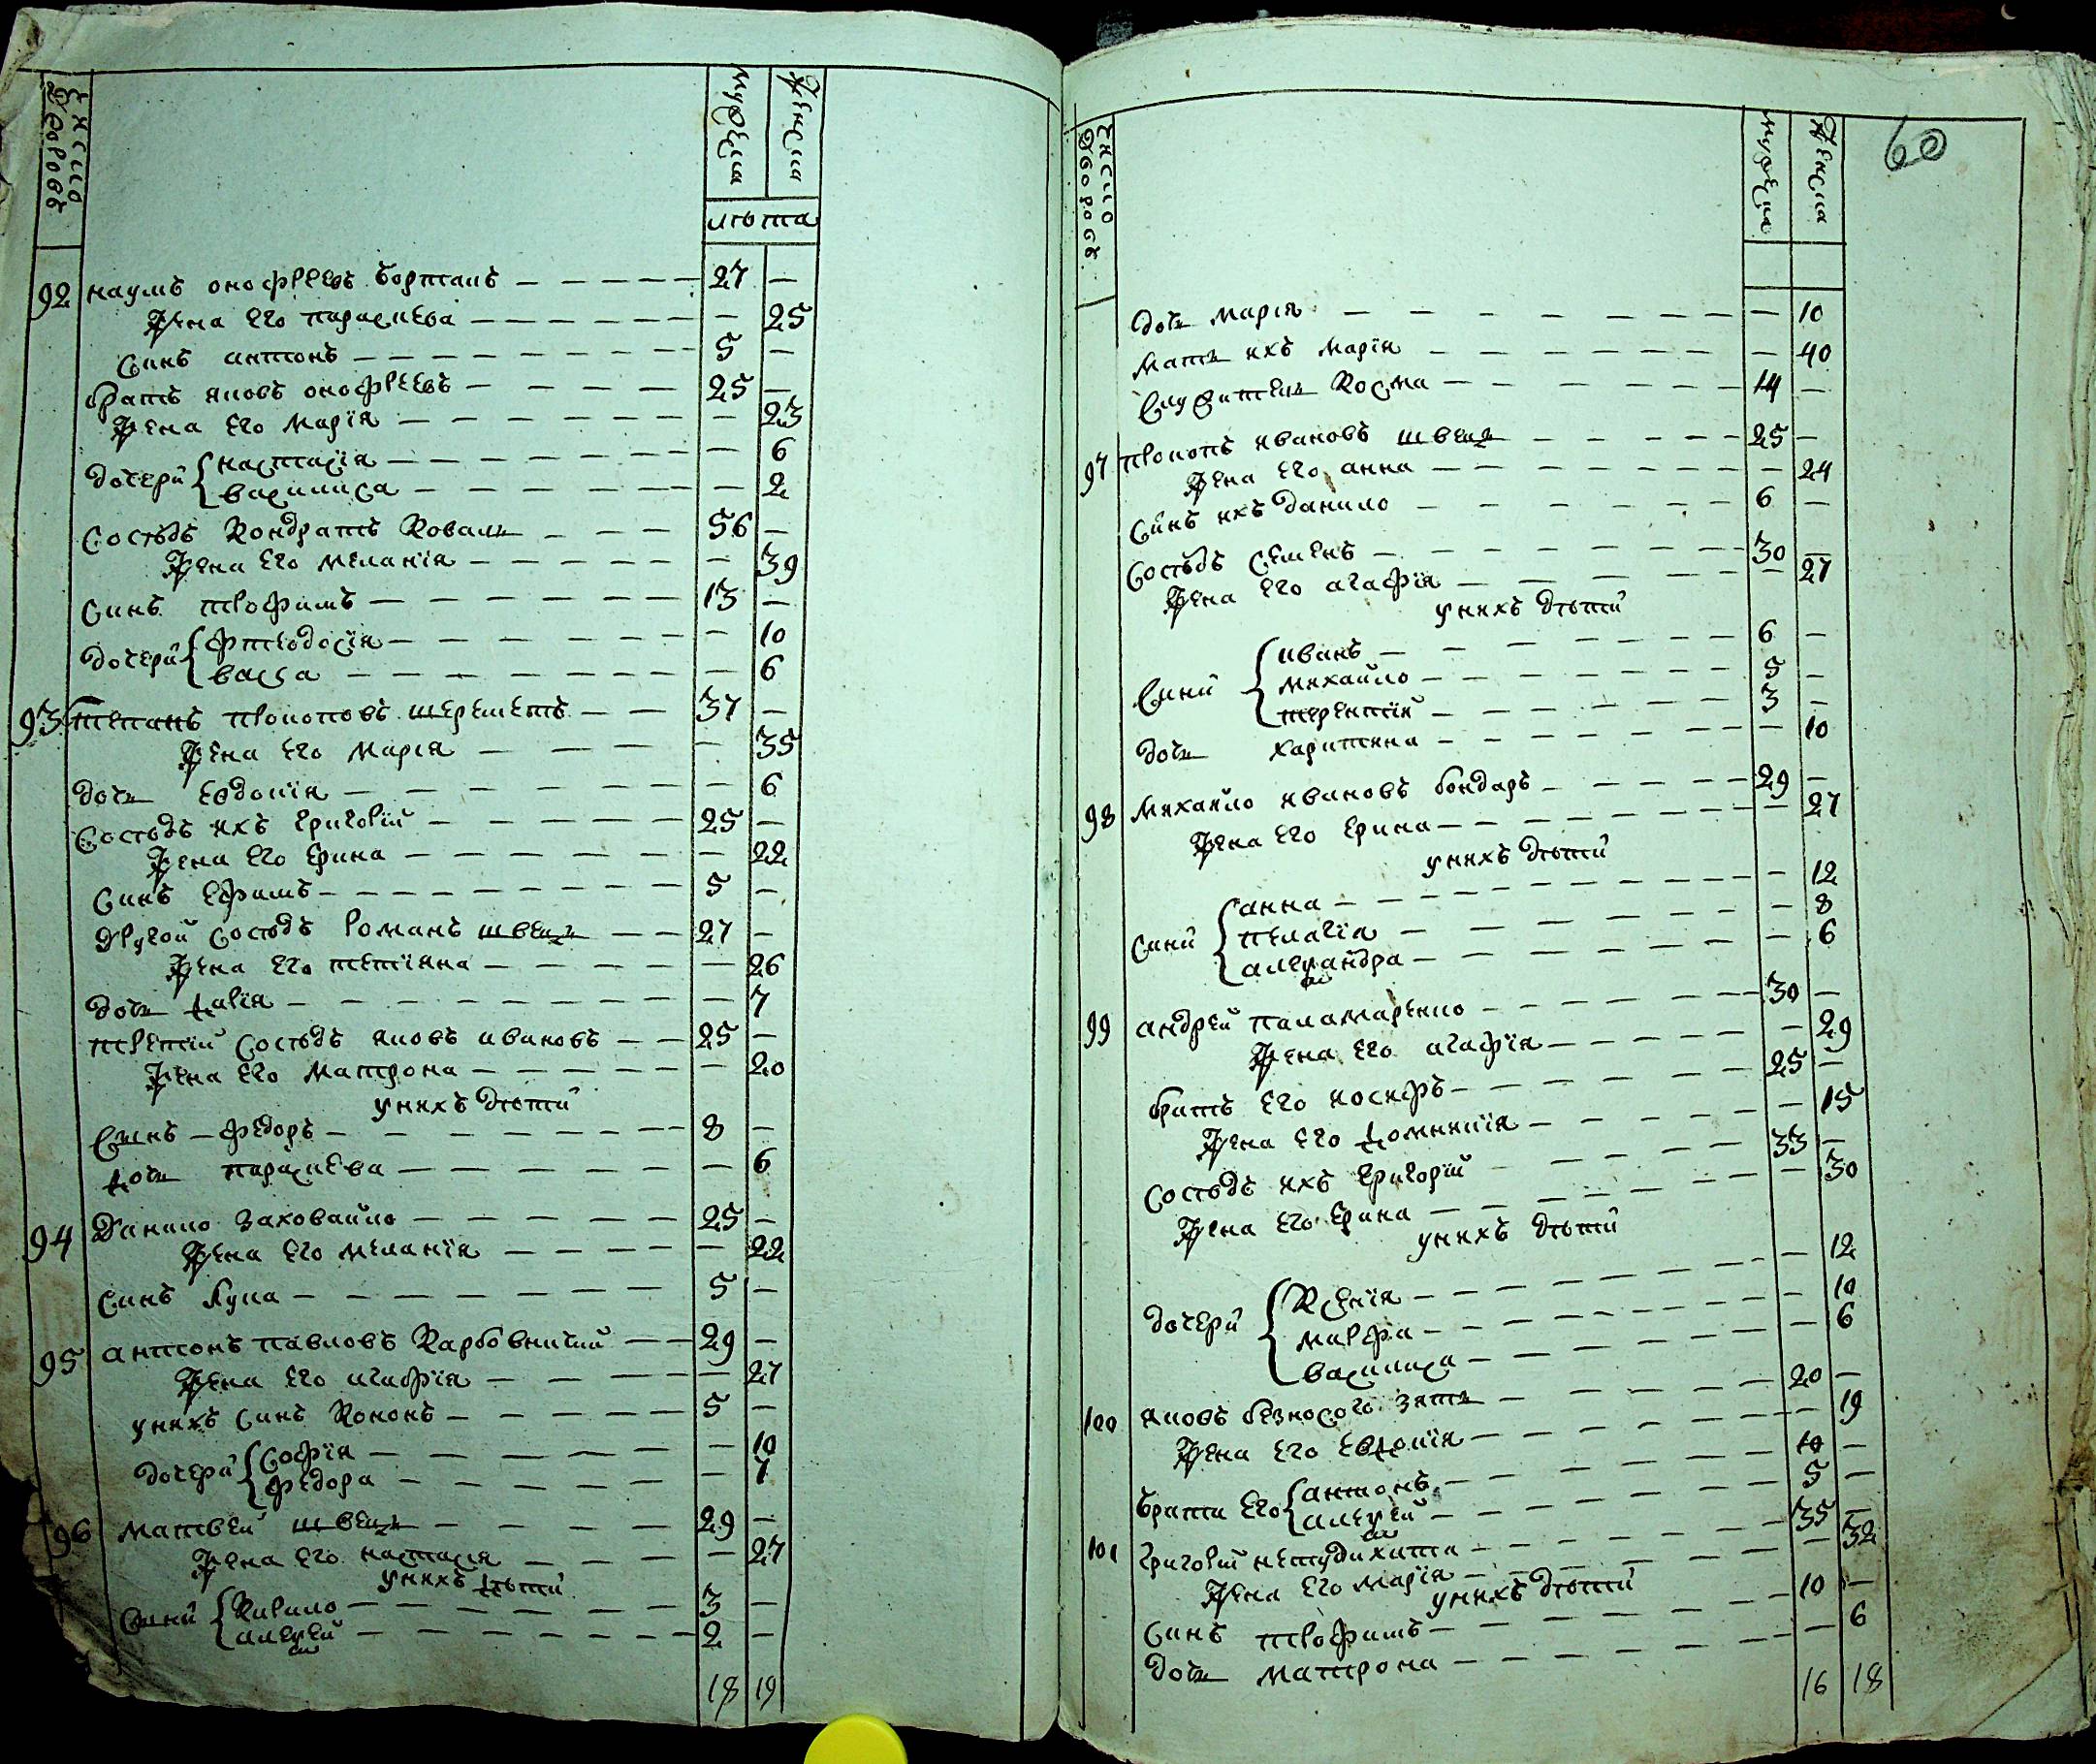 число дворовъ
мужеска
женска
лѣта
92 наумъ онофреевъ борталъ 27 —
жена его параскева — 25
синъ антонъ 5 —
братъ яковъ онофреевъ 25 —
жена его марїя — 23
дочери настасїя — 6
василиса — 2
состѣдъ кондратъ коваль 56 —
жена его меланїя — 39
синъ трофимъ 13 —
дочери фтеодосїя — 10
васса — 6
93 степанъ прокоповъ шереметъ 37 —
жена его марїя — 35
дочь евдокїя — 6
состѣдъ ихъ григорїй 25 —
жена его ерина — 22
синъ ефимъ 5 —
другой состѣдъ романъ швецъ 27 —
жена его тетїяна — 26
дочь — 7
третїй состѣдъ яковъ ивановъ 25 —
жена его матрона — 20
унихъ дѣти
синъ федоръ 8 —
дочь параскева — 6
94 данило заховайло 25 —
жена его меланїя — 22
синъ лука 5 —
95 антонъ павловъ карбовничїй 29 —
жена его агафїя — 27
унихъ синъ кононъ 5 —
дочери софїя — 10
федора — 7
96 матвей швецъ 29 —
жена его настасїя — 27
унихъ дѣти
сини кирило 3 —
алексей 2 —
18 19
60
число дворовъ
мужеска
женска
дочь марїя — 10
мать ихъ марїя — 40
служитель косма 14 —
97 прокопъ ивановъ швецъ 25 —
жена его анна — 24
синъ ихъ данило 6 —
состѣдъ семенъ 30 —
жена его агафїя — 27
унихъ дѣти
сини иванъ 6 —
михайло 5 —
терентїй 3 —
дочь харитина — 10
98 михайло ивановъ бондаръ 29 —
жена его ерина — 27
унихъ дѣти
сини анна — 12
пелагїя — 8
александра — 6
99 андрей паламаренко 30 —
жена его агафїя — 29
братъ его иосифъ 25 —
жена его домникїя — 15
состѣдъ ихъ григорїй 33 —
жена его ерина — 30
унихъ дѣти
дочери ксенїя — 12
марфа — 10
василиса — 6
100 яковъ безносого зять 20 —
жена его евдокїя — 19
брати его антонъ 10 —
алексей 5 —
101 григорїй нетудихата 35 —
жена его марїя — 32
унихъ дѣти
синъ трофимъ 10 —
дочь матрона — 6
16 18